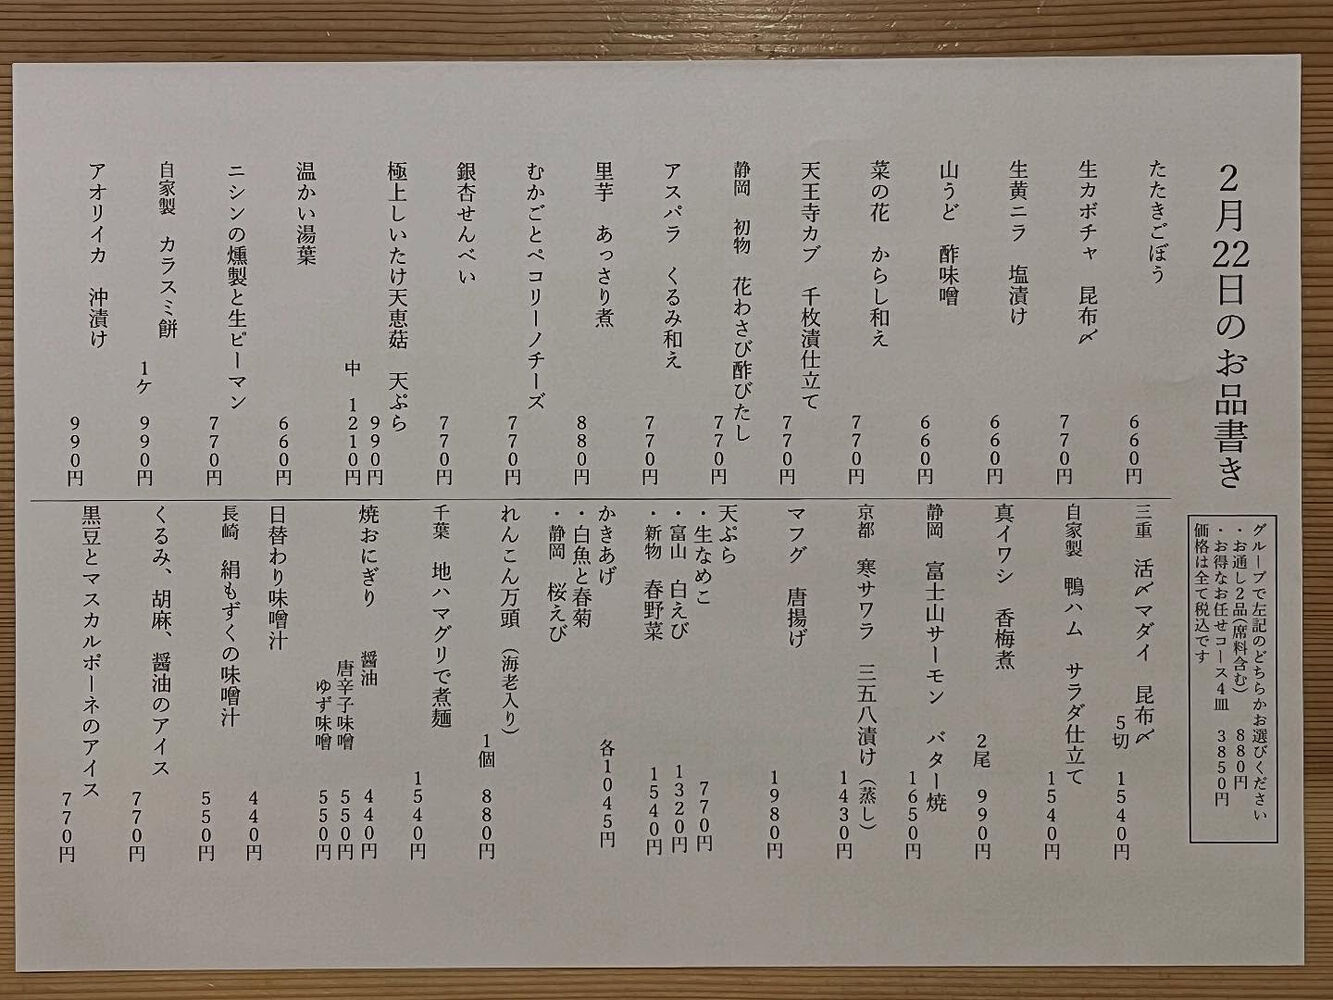 2月22日のお品書き
グループで左記のどちらかお選びください
・お通し2品(席料含む) 880円
・お得なお任せコース4皿 3850円
価格は全て税込です
たたきごぼう 660円
生カボチャ 昆布〆 770円
生黄ニラ 塩漬け 660円
山うど 酢味噌 660円
菜の花 からし和え 770円
天王寺カブ 千枚漬仕立て 770円
静岡 初物 花わさび酢びたし 770円
アスパラ くるみ和え 770円
里芋 あっさり煮 880円
むかごとペコリーノチーズ 770円
銀杏せんべい 770円
極上しいたけ天恵菇 天ぷら 990円
中 1210円
温かい湯葉 660円
ニシンの燻製と生ピーマン 770円
自家製 カラスミ餅
1ケ 990円
アオリイカ 沖漬け 990円
三重 活〆マダイ 昆布〆
5切 1540円
自家製 鴨ハム サラダ仕立て 1540円
真イワシ 香梅煮
2尾 990円
静岡 富士山サーモン バター焼 1650円
京都 寒サワラ 三五八漬け(蒸し) 1430円
マフグ 唐揚げ 1980円
天ぷら
・生なめこ 770円
・富山 白えび 1320円
・新物 春野菜 1540円
かきあげ 各1045円
・白魚と春菊
・静岡 桜えび
れんこん万頭(海老入り)
1個 880円
千葉 地ハマグリで煮麺 1540円
焼おにぎり 醤油 440円
唐辛子味噌 550円
ゆず味噌 550円
日替わり味噌汁 440円
長崎 絹もずくの味噌汁 550円
くるみ、胡麻、醤油のアイス 770円
黒豆とマスカルポーネのアイス 770円